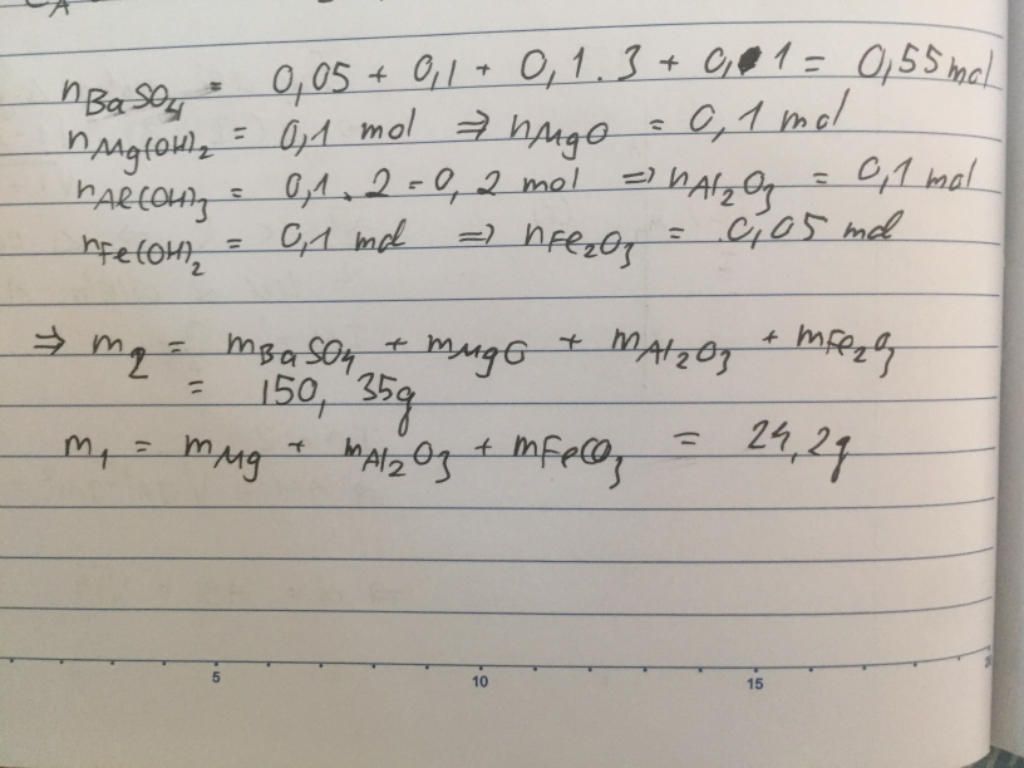 A
nBaSO4 = 0,05 + 0,1 + 0,1.3 + 0,1 = 0,55 mol
nMg(OH)2 = 0,1 mol ⇒ nMgO = 0,1 mol
nAl(OH)3 = 0,1.2 = 0,2 mol ⇒ nAl2O3 = 0,1 mol
nFe(OH)2 = 0,1 mol ⇒ nFe2O3 = 0,05 mol
⇒ m2 = mBaSO4 + mMgO + mAl2O3 + mFe2O3
= 150,35g
m1 = mMg + mAl2O3 + mFeCO3 = 24,2g
5 10 15